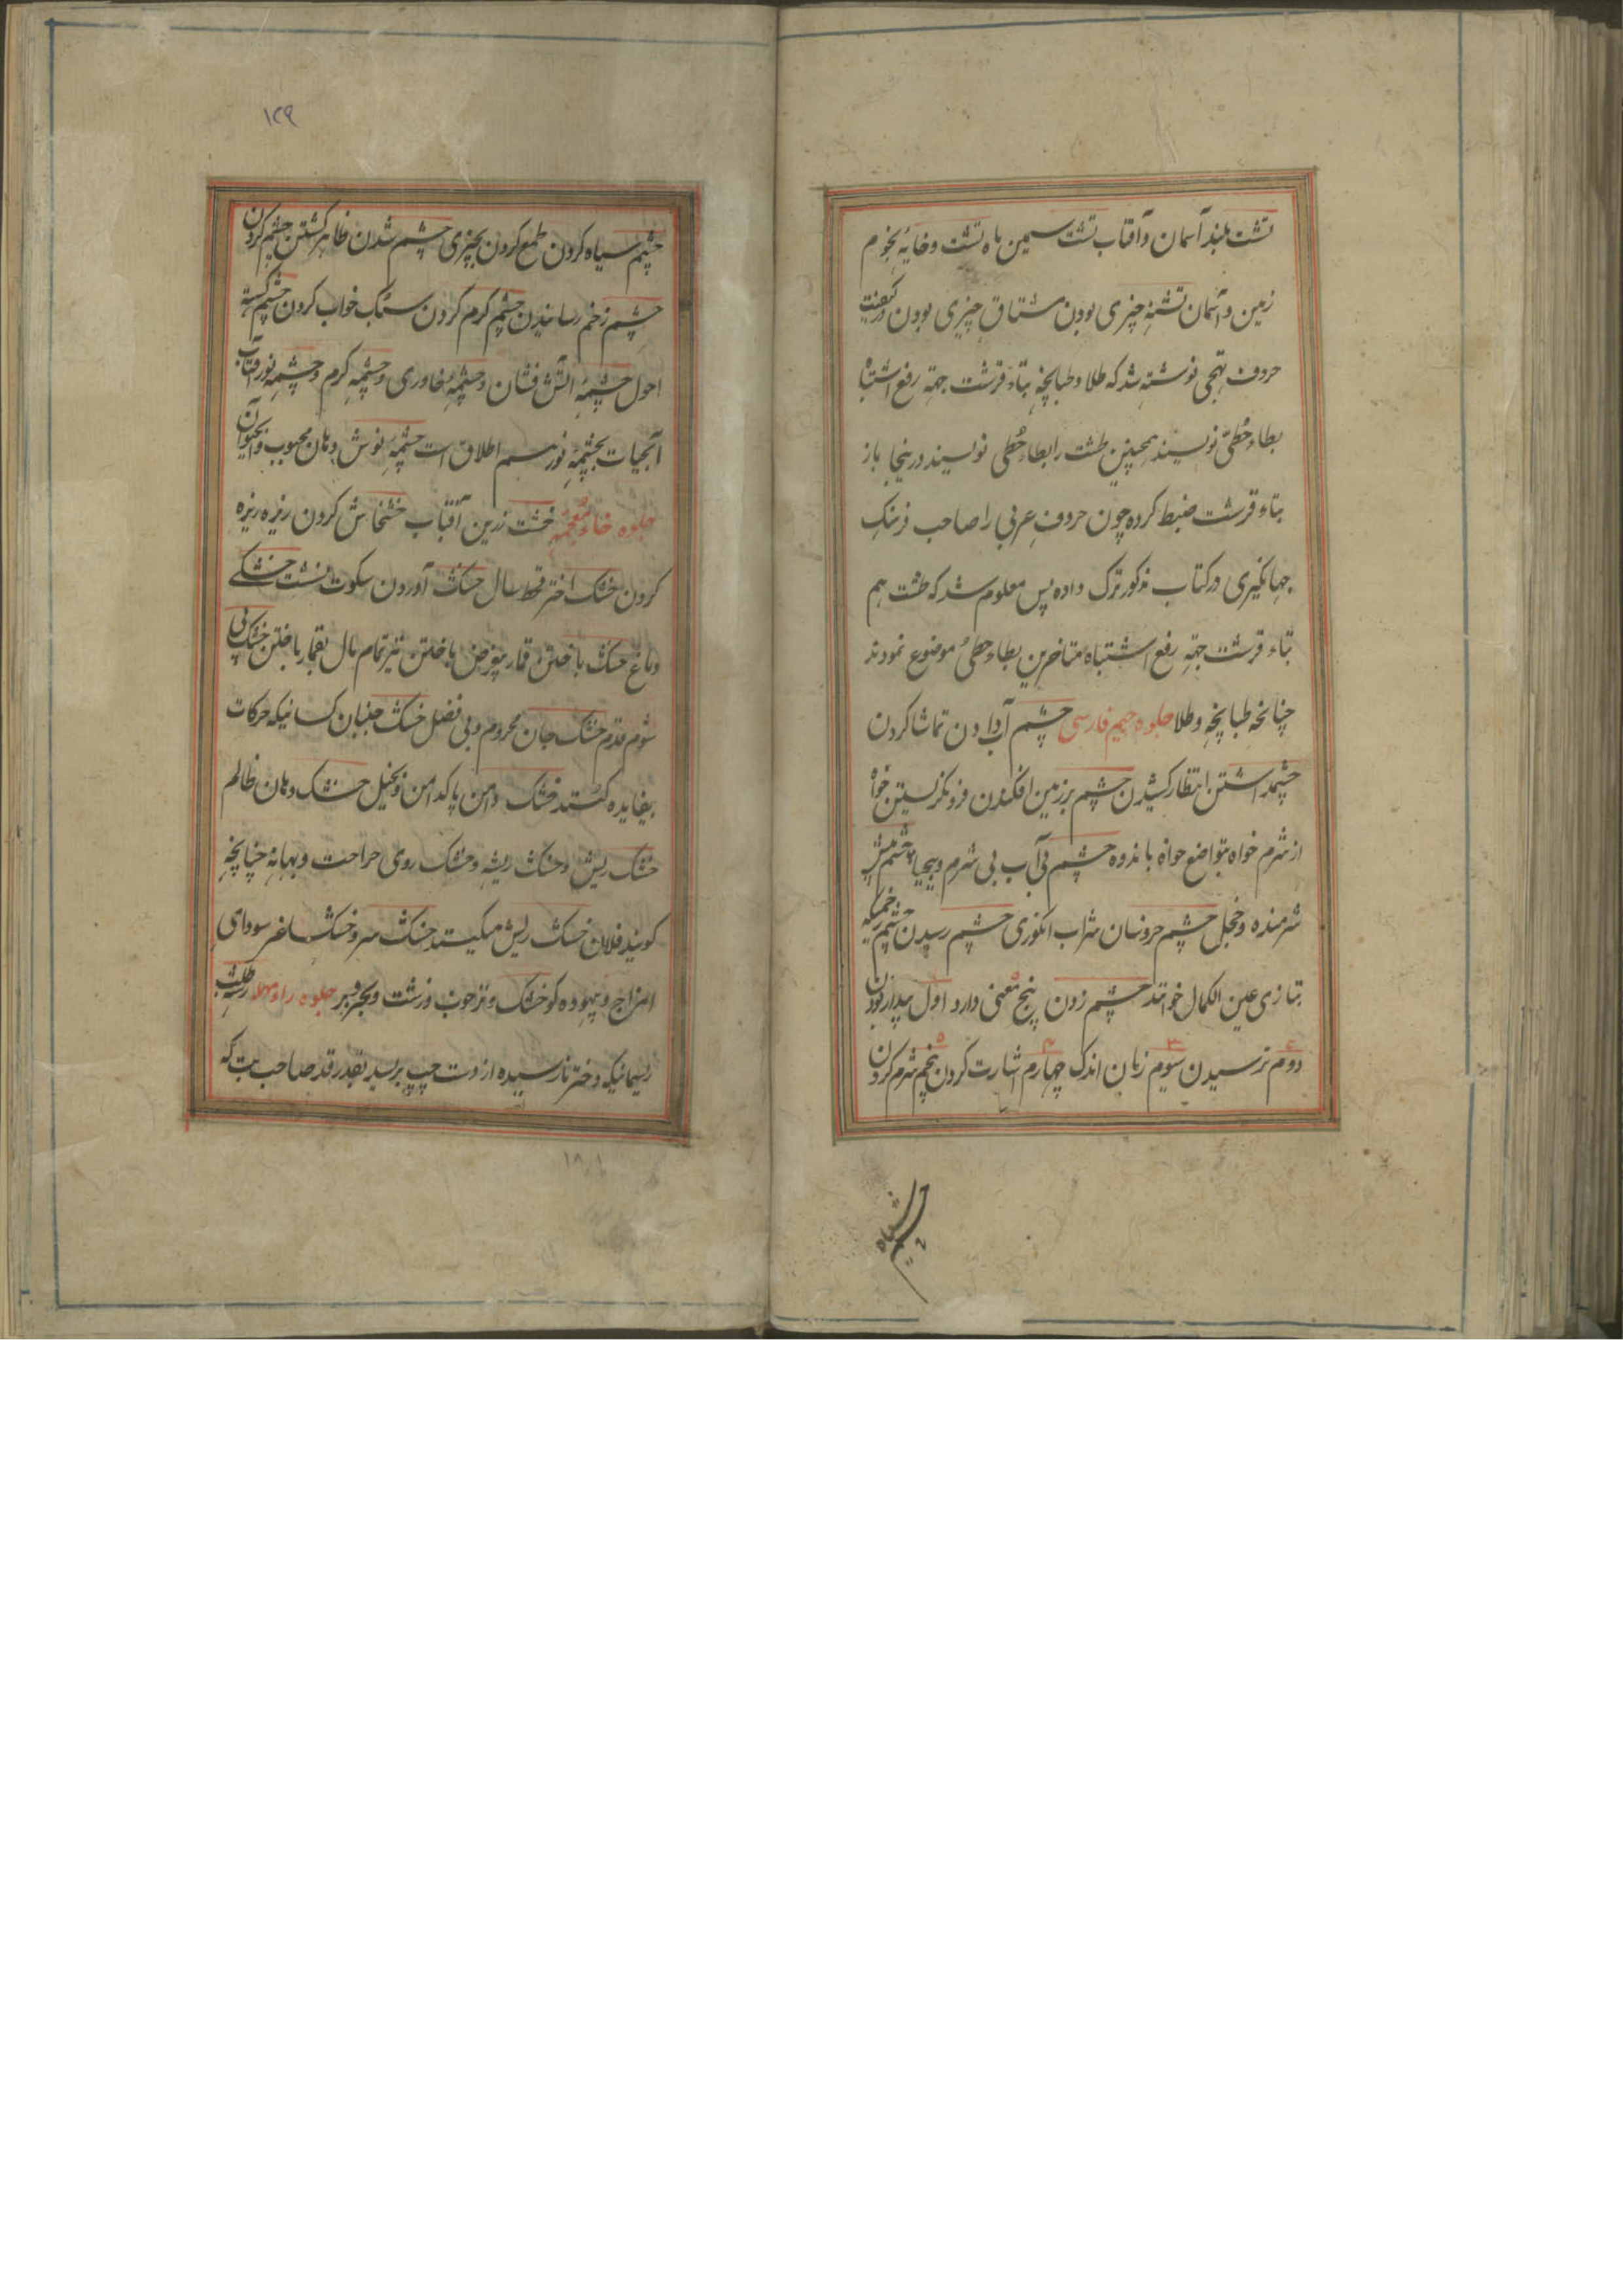 تشت بلند آسمان و آفتاب تشت سیمین ماه تشت و خایه نجوم
زمین و آسمان تشنه چیزی بودن مشتاق چیزی بودن در کیفیت
حروف تهجی نوشته شد که طلا و طبانچه بتاء قرشت جهة رفع اشتباه
بطاء حُطّی نویسند همچنین طشت را بطاء حُطّی نویسند درینجا باز
بتاء قرشت ضبط کرده چون حروف عربی را صاحب فرهنک
جهانکیری در کتاب مذکور ترک داده پس معلوم شد که طشت هم
بتاء قرشت جهة رفع اشتباه متاخرین بطاء حطی موضوع نمودند
چنانچه طبانچه و طلا جلوه جیم فارسی چشم آب دادن تماشا کردن
چشمداشتن انتظار کشیدن چشم بر زمین افکندن فرو نکریستن خواه
از شرم خواه بتواضع خواه باندوه چشم بی آب بی شرم و بیحیا چشم پیش
شرمنده و خجل چشم خروسان شراب انکوری چشم رسیدن چشم زخمیکه
بتازی عین الکمال خوانند چشم زدن پنج معنی دارد اول بیدار بودن
دوم ترسیدن سیوم زمان اندک چهارم اشارت کردن پنجم شرم کردن
چشم سیاه
۱۲۹
چشم سیاه کردن طمع کردن بچیزی چشم شدن ظاهر کشتن چشم کردن
چشم زخم رسانیدن چشم کرم کردن سبک خواب کردن چشم کسته
احول چشمه آتش فشان و چشمه خاوری و چشمه کرم و چشمه نور آفتاب
آبحیات بچشمه نور هم اطلاق است چشمه نوش دهان محبوب و آبحیوان
جلوه خاء معجمه خشت زرین آفتاب خشخاش کردن ریزه ریزه
کردن خشک اختر قحط سال خشک آوردن سکوت خشکی
دماغ خشک باختن قمار بیغرض باختن نیز تمام مال بقمار باختن خشک پی
شوم قدم خشک جان محروم و بی فضل خشک جنبان کسانیکه حرکات
بیفایده کنند خشک دامن پاکدامن و بخیل خشک دهان ظالم
خشک ریش و خشک ریشه و خشک روی جراحت و بهانه چنانچه
کویند فلان خشک ریش میکند خشک سر و خشک ساغر سودای
المزاج و بیهوده کو خشک و تر خوب و زشت و بحر و بر جلوه راء مهمله رشته
ریسمانیکه دختر نارسیده از دست چپ برسد بقدر قد صاحب تب که
۱۸۱